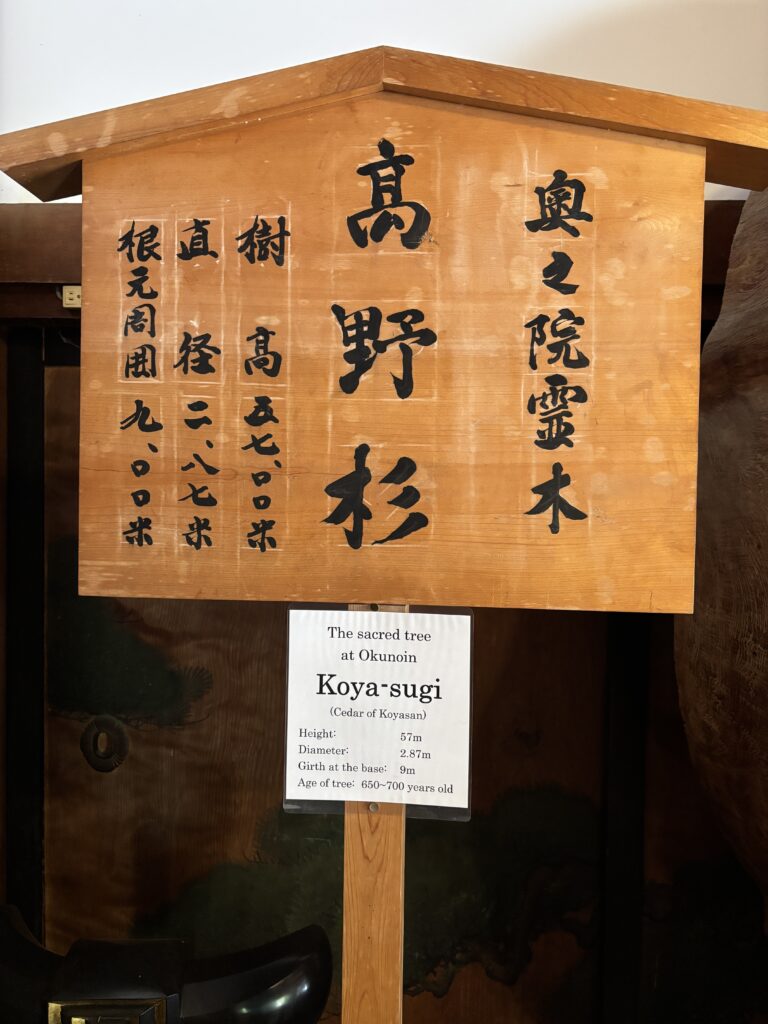 奥之院霊木
高野杉
樹高 五七、〇〇米
直径 二、八七米
根元周囲 九、〇〇米
The sacred tree
at Okunoin
Koya-sugi
(Cedar of Koyasan)
Height: 57m
Diameter: 2.87m
Girth at the base: 9m
Age of tree: 650~700 years old